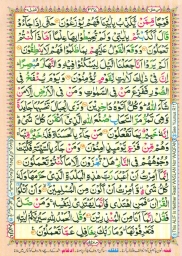 فَوْجًا مِّمَّنْ يُّكَذِّبُ بِاٰيٰتِنَا فَهُمْ يُوْزَعُوْنَ حَتّٰۤى اِذَا جَآءُوْ
قَالَ اَكَذَّبْتُمْ بِاٰيٰتِيْ وَلَمْ تُحِيْطُوْا بِهَا عِلْمًا اَمَّا ذَا كُنْتُمْ
تَعْمَلُوْنَ وَوَقَعَ الْقَوْلُ عَلَيْهِمْ بِمَا ظَلَمُوْا فَهُمْ لَا يَنْطِقُوْنَ
اَلَمْ يَرَوْا اَنَّا جَعَلْنَا الَّيْلَ لِيَسْكُنُوْا فِيْهِ وَالنَّهَارَ مُبْصِرًا
اِنَّ فِيْ ذٰلِكَ لَاٰيٰتٍ لِّقَوْمٍ يُّؤْمِنُوْنَ وَيَوْمَ يُنْفَخُ فِي الصُّوْرِ
فَفَزِعَ مَنْ فِي السَّمٰوٰتِ وَمَنْ فِي الْاَرْضِ اِلَّا مَنْ شَآءَ
اللّٰهُ وَكُلٌّ اَتَوْهُ دٰخِرِيْنَ وَتَرَى الْجِبَالَ تَحْسَبُهَا جَامِدَةً
وَّهِيَ تَمُرُّ مَرَّ السَّحَابِ صُنْعَ اللّٰهِ الَّذِيْ اَتْقَنَ كُلَّ شَيْءٍ
اِنَّهٗ خَبِيْرٌ بِمَا تَفْعَلُوْنَ مَنْ جَآءَ بِالْحَسَنَةِ فَلَهٗ خَيْرٌ مِّنْهَا
وَهُمْ مِّنْ فَزَعٍ يَّوْمَئِذٍ اٰمِنُوْنَ وَمَنْ جَآءَ بِالسَّيِّئَةِ فَكُبَّتْ
وُجُوْهُهُمْ فِي النَّارِ هَلْ تُجْزَوْنَ اِلَّا مَا كُنْتُمْ تَعْمَلُوْنَ
اِنَّمَا اُمِرْتُ اَنْ اَعْبُدَ رَبَّ هٰذِهِ الْبَلْدَةِ الَّذِيْ حَرَّمَهَا وَلَهٗ
كُلُّ شَيْءٍ وَّاُمِرْتُ اَنْ اَكُوْنَ مِنَ الْمُسْلِمِيْنَ وَاَنْ اَتْلُوَا
الْقُرْاٰنَ فَمَنِ اهْتَدٰى فَاِنَّمَا يَهْتَدِيْ لِنَفْسِهٖ وَمَنْ ضَلَّ فَقُلْ
اِنَّمَا اَنَا مِنَ الْمُنْذِرِيْنَ وَقُلِ الْحَمْدُ لِلّٰهِ سَيُرِيْكُمْ اٰيٰتِهٖ
فَتَعْرِفُوْنَهَا وَمَا رَبُّكَ بِغَافِلٍ عَمَّا تَعْمَلُوْنَ